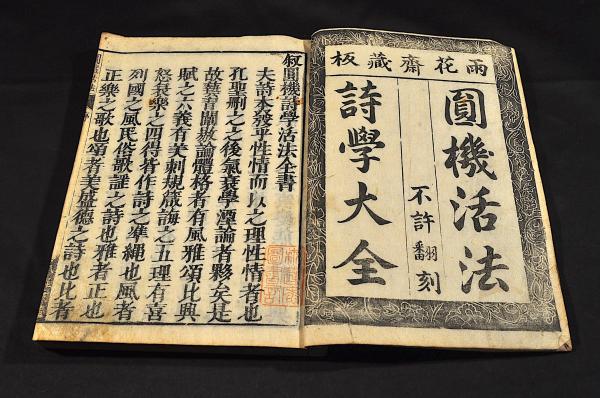 雨花齋藏板
圓機活法
不許翻刻
詩學大全
叙圓機詩學活法全書
夫詩本發乎性情而以之理性情者也
孔聖刪之之後氣衰學湮論者夥矣是
故葉音關
論體格者有風雅頌比興
賦之六義有美刺規箴誨之五理有喜
怒哀樂之四得皆作詩之準繩也風者
列國之風民俗歌謠之詩也雅者正也
正樂之歌也頌者美盛德之詩也比者